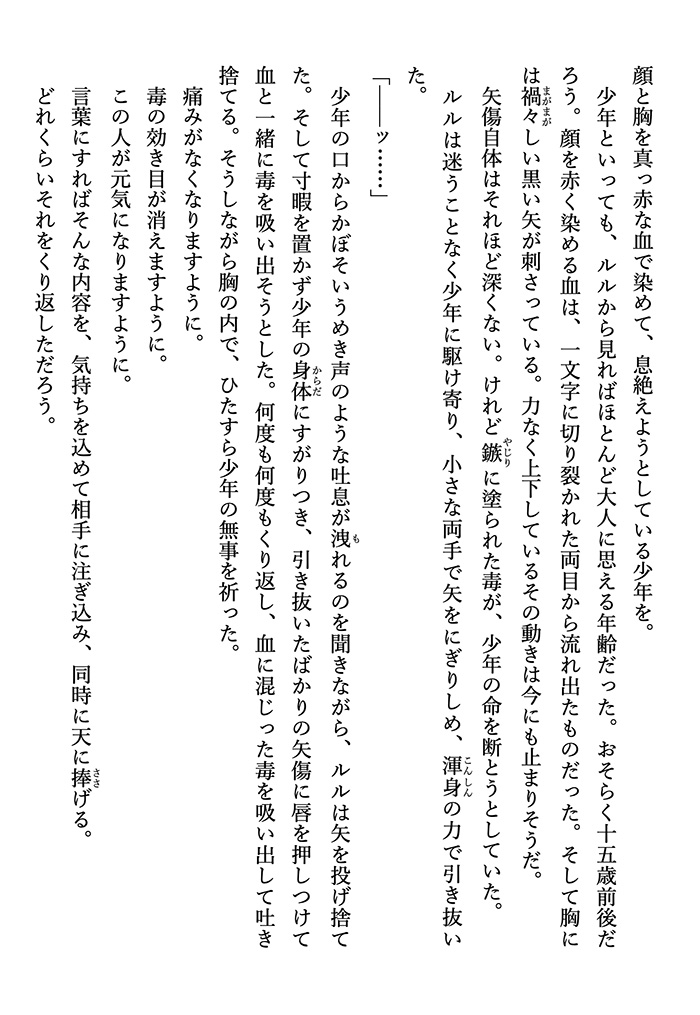 顔と胸を真っ赤な血で染めて、息絶えようとしている少年を。
少年といっても、ルルから見ればほとんど大人に思える年齢だった。おそらく十五歳前後だ
ろう。顔を赤く染める血は、一文字に切り裂かれた両目から流れ出たものだった。そして胸に
は禍々しい黒い矢が刺さっている。力なく上下しているその動きは今にも止まりそうだ。
まがまが
矢傷自体はそれほど深くない。けれど鏃に塗られた毒が、少年の命を断とうとしていた。
やじり
ルルは迷うことなく少年に駆け寄り、小さな両手で矢をにぎりしめ、渾身の力で引き抜い
こんしん
た。
「――ッ……」
少年の口からかぼそいうめき声のような吐息が洩れるのを聞きながら、ルルは矢を投げ捨て
も
た。そして寸暇を置かず少年の身体にすがりつき、引き抜いたばかりの矢傷に唇を押しつけて
からだ
血と一緒に毒を吸い出そうとした。何度も何度もくり返し、血に混じった毒を吸い出して吐き
捨てる。そうしながら胸の内で、ひたすら少年の無事を祈った。
痛みがなくなりますように。
毒の効き目が消えますように。
この人が元気になりますように。
言葉にすればそんな内容を、気持ちを込めて相手に注ぎ込み、同時に天に捧げる。
ささ
どれくらいそれをくり返しただろう。